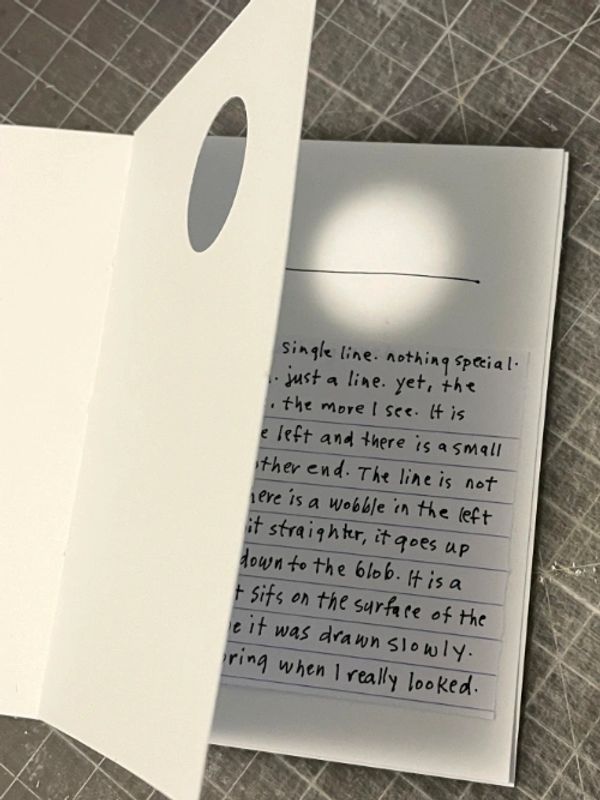 single line. nothing special.
. just a line. yet, the
. the more I see. It is
left and there is a small
other end. The line is not
here is a wobble in the left
it straighter, it goes up
down to the blob. It is a
sits on the surface of the
it was drawn slowly.
when I really looked.